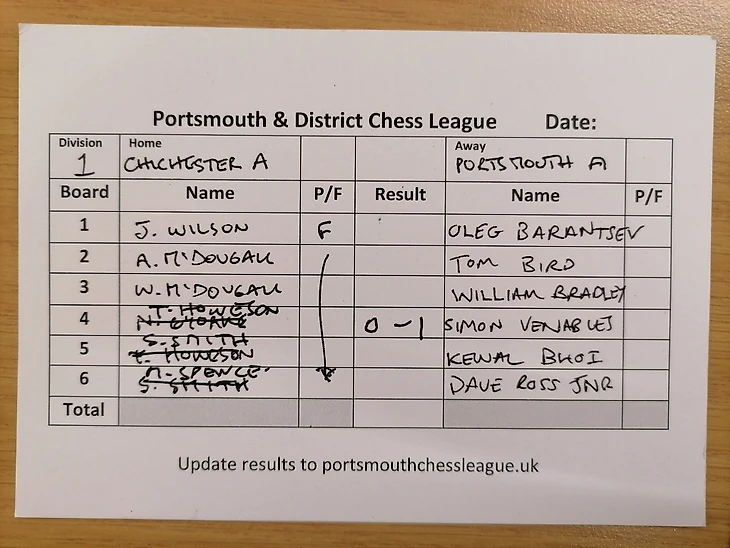 Portsmouth & District Chess League Date:
Division Home Away
1 CHICHESTER A PORTSMOUTH A
Board Name P/F Result Name P/F
1 J. WILSON F OLEG BARANTSEV
2 A. McDOUGALL TOM BIRD
3 W. McDOUGALL WILLIAM BRADLEY
T. HOWESON
4 0-1 SIMON VENABLES
S. SMITH
5 T. HOWESON KEWAL BHOI
M. SPENCE
6 S. SMITH DAVE ROSS JNR
Total
Update results to portsmouthchessleague.uk